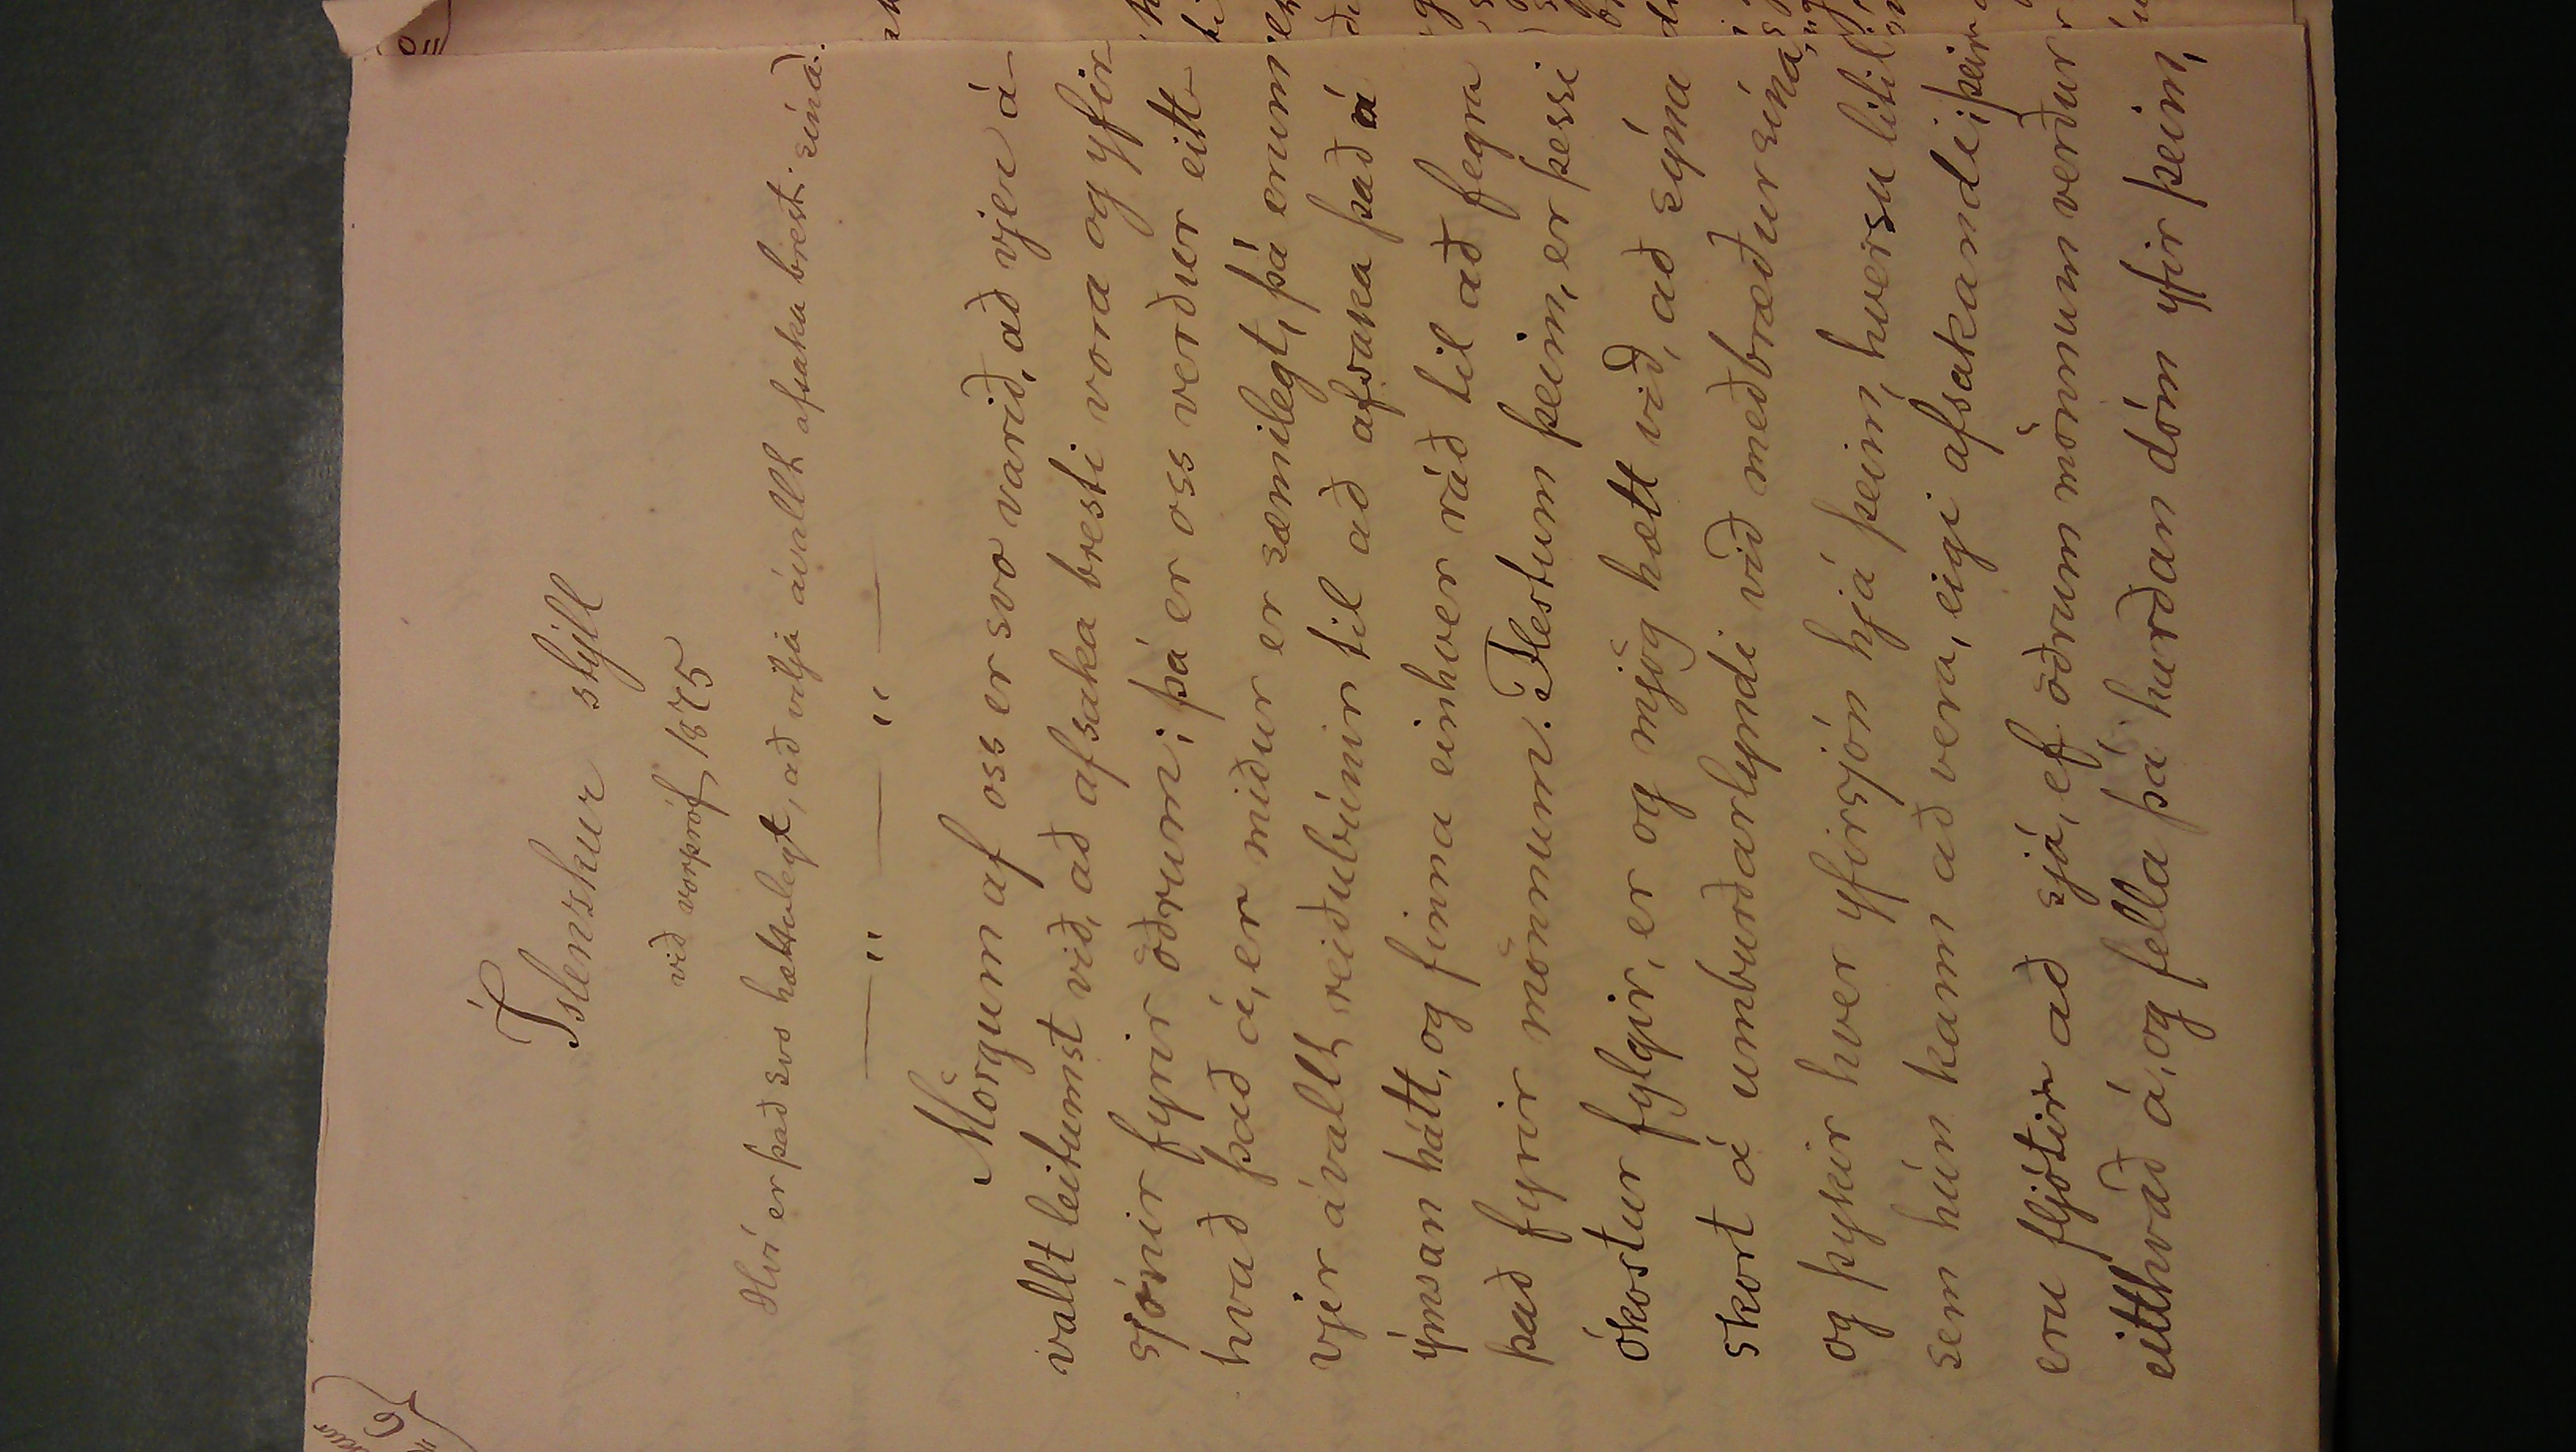 Íslenzkur stýll
við vorpróf 1875
Hví er það svo hættulegt, að vilja ávallt afsaka bresti sína?
Mörgum af oss er svo varið, að vjer á-
vallt leitumst við, að afsaka bresti vora og yfir
sjónir fyrir öðrum; þá er oss verður eitt-
hvað það á, er miður er sæmilegt, þá erum
vjer ávallt reiðubúnir til að afsaka það á
ýmsan hátt, og finna einhver ráð til að fegra
það fyrir mönnum. Flestum þeim, er þessi
ókostur fylgir, er og mjög hætt við, að sýna
skort á umburðarlyndi við meðbræður sína,
og þykir hver yfirsjón hjá þeim, hversu lítil
sem hún kann að vera, eigi afsakandi; þeir
eru fljótir að sjá, ef öðrum mönnum verður
eitthvað á, og fella þá harðan dóm yfir þeim,